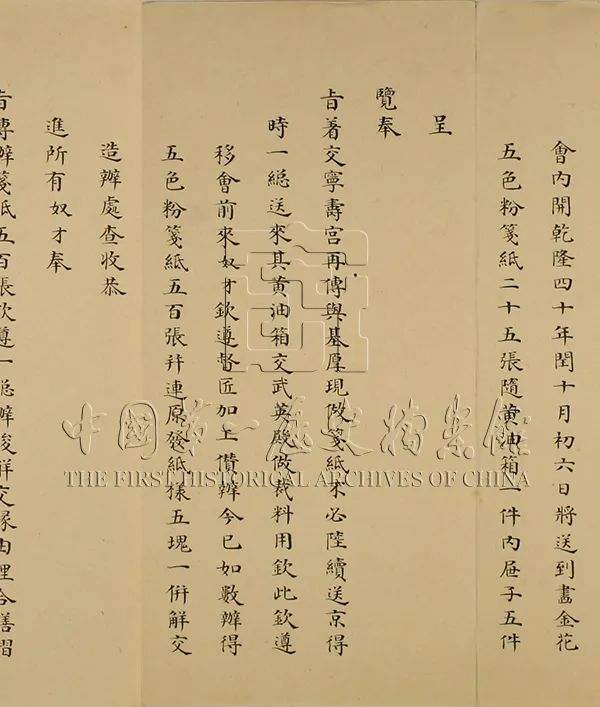 會內開乾隆四十年閏十月初六日將送到畫金花
五色粉箋紙二十五張隨黄油箱一件內屜子五件
呈
覽奉
旨着交寧壽宮再傳與基厚現做箋紙不必陸續送京得
時一緫送來其黄油箱交武英殿做裁料用欽此欽遵
移會前來奴才欽遵督匠加工儹辦今已如數辦得
五色粉箋紙五百張幷連原發紙樣五塊一倂解交
造辦處查收恭
進所有奴才奉
旨傳辦箋紙五百張欽遵一緫辦竣解交緣由理合繕摺
中國第一歷史檔案館
THE FIRST HISTORICAL ARCHIVES OF CHINA